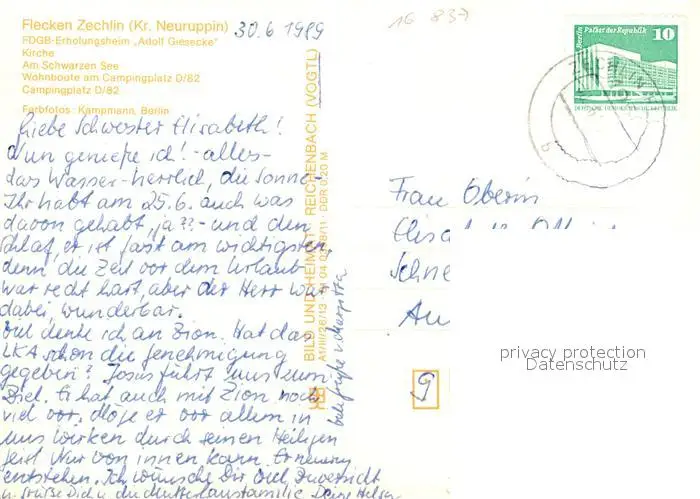 Flecken Zechlin (Kr. Neuruppin)
FDGB-Erholungsheim „Adolf Giesecke"
Kirche
Am Schwarzen See
Wohnboote am Campingplatz D/82
Campingplatz D/82
Farbfotos: Kampmann, Berlin
30.6 1989
16 837
Liebe Schwester Elisabeth!
Nun genieße ich! - alles -
das Wasser - herrlich, die Sonne -
Ihr habt am 25.6. auch was
davon gehabt, ja?? - und den
Schlaf, er ist fast am wichtigsten,
denn die Zeit vor dem Urlaub
war recht hart, aber der Herr war
dabei, wunderbar.
Viel denke ich an Zion. Hat das
LKA schon die Genehmigung
gegeben? Jesus führt uns zum
Ziel. Er hat auch mit Zion noch
viel vor. Möge er vor allem in
uns wirken durch seinen Heiligen
Geist. Nur von innen kann Erneuerung
entstehen. Ich wünsche Dir viel Zuversicht
u. grüße Dich u. die Mutterhausfamilie Deine
BILD UND HEIMAT REICHENBACH (VOGTL)
DDR 0,20 M
Berlin Palast der Republik 10
DEUTSCHE DEMOKRATISCHE REPUBLIK
ZECHLIN
b
Frau Oberin
Schne
9
privacy protection
Datenschutz